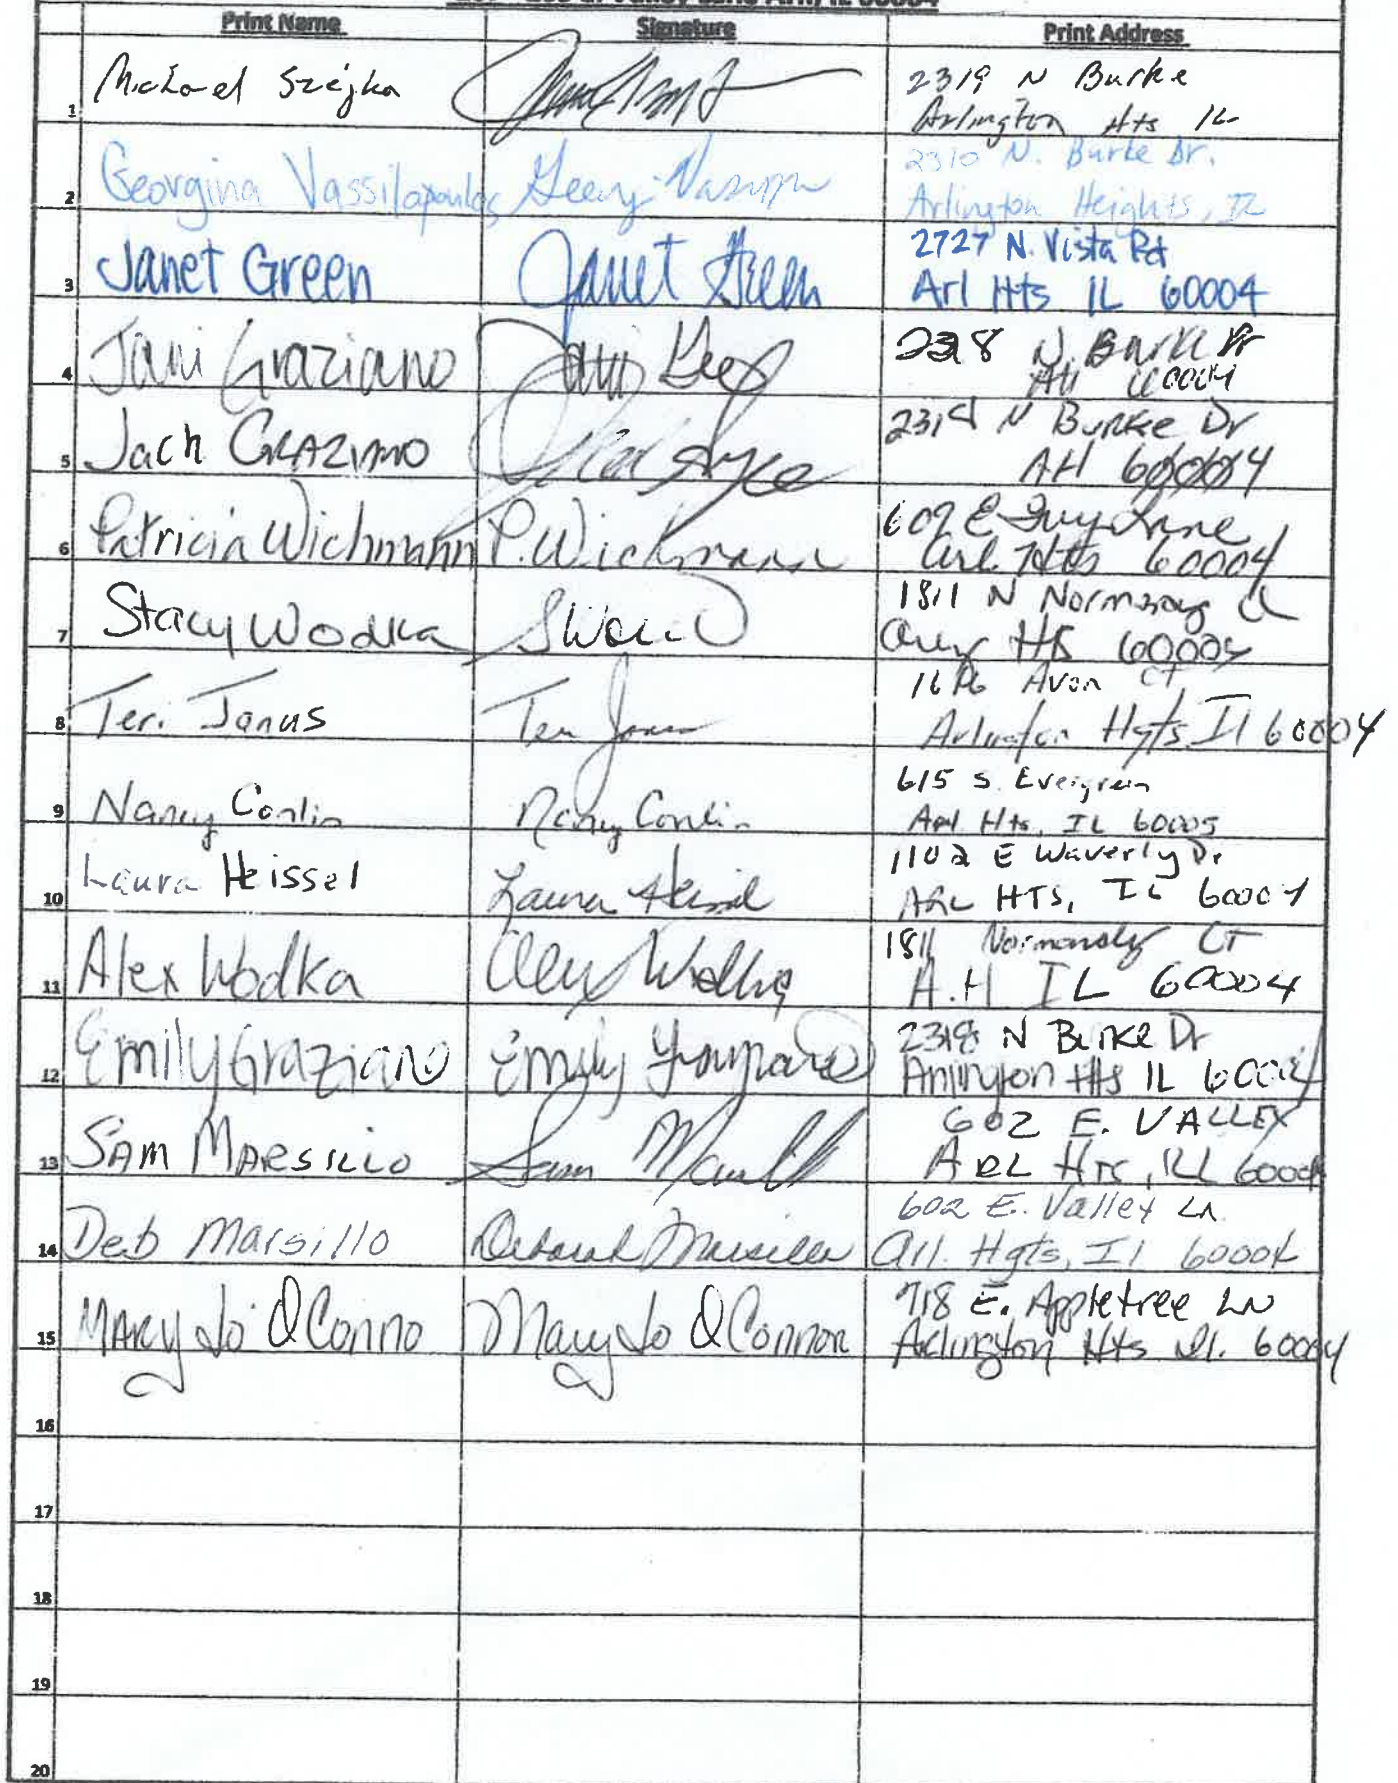 Print Name Signature Print Address
1 Michael Szejka 2319 N Burke
Arlington Hts IL
2 Georgina Vassilopoulos 2310 N. Burke Dr.
Arlington Heights, IL
3 Janet Green Janet Green 2727 N. Vista Rd
Arl Hts IL 60004
4 Jani Graziano N. Burke Dr
AH 60004
5 Jack GRAZIANO N Burke Dr
AH 60004
6 Patricia Wichmann P. Wichmann 609 E Ivy Lane
Arl Hts 60004
7 Stacy Wodka 1811 N Normandy Ct
Hts 60004
8 Teri Janus Teri Janus Avon CT
Arlington Hgts Il 60004
9 Nancy Conlin Nancy Conlin 615 S. Evergreen
Arl Hts, IL 60005
10 Laura Heissel Laura Heissel 1102 E Waverly Dr
ARL HTS, IL 60004
11 Alex Wodka Alex Wodka 1811 Normandy CT
A.H IL 60004
12 Emily Graziano Emily Graziano 2318 N Burke Dr
Arlington Hts IL 60004
13 SAM MARSILLO Sam 602 E. VALLEY
ARL HTS, ILL 60004
14 Deb Marsillo Deborah Marsillo 602 E. Valley LN
Arl. Hgts, Il 60004
15 MARY Jo O'Conno Mary Jo O'Connor 718 E. Appletree LN
Arlington Hts Il. 60004
16
17
18
19
20